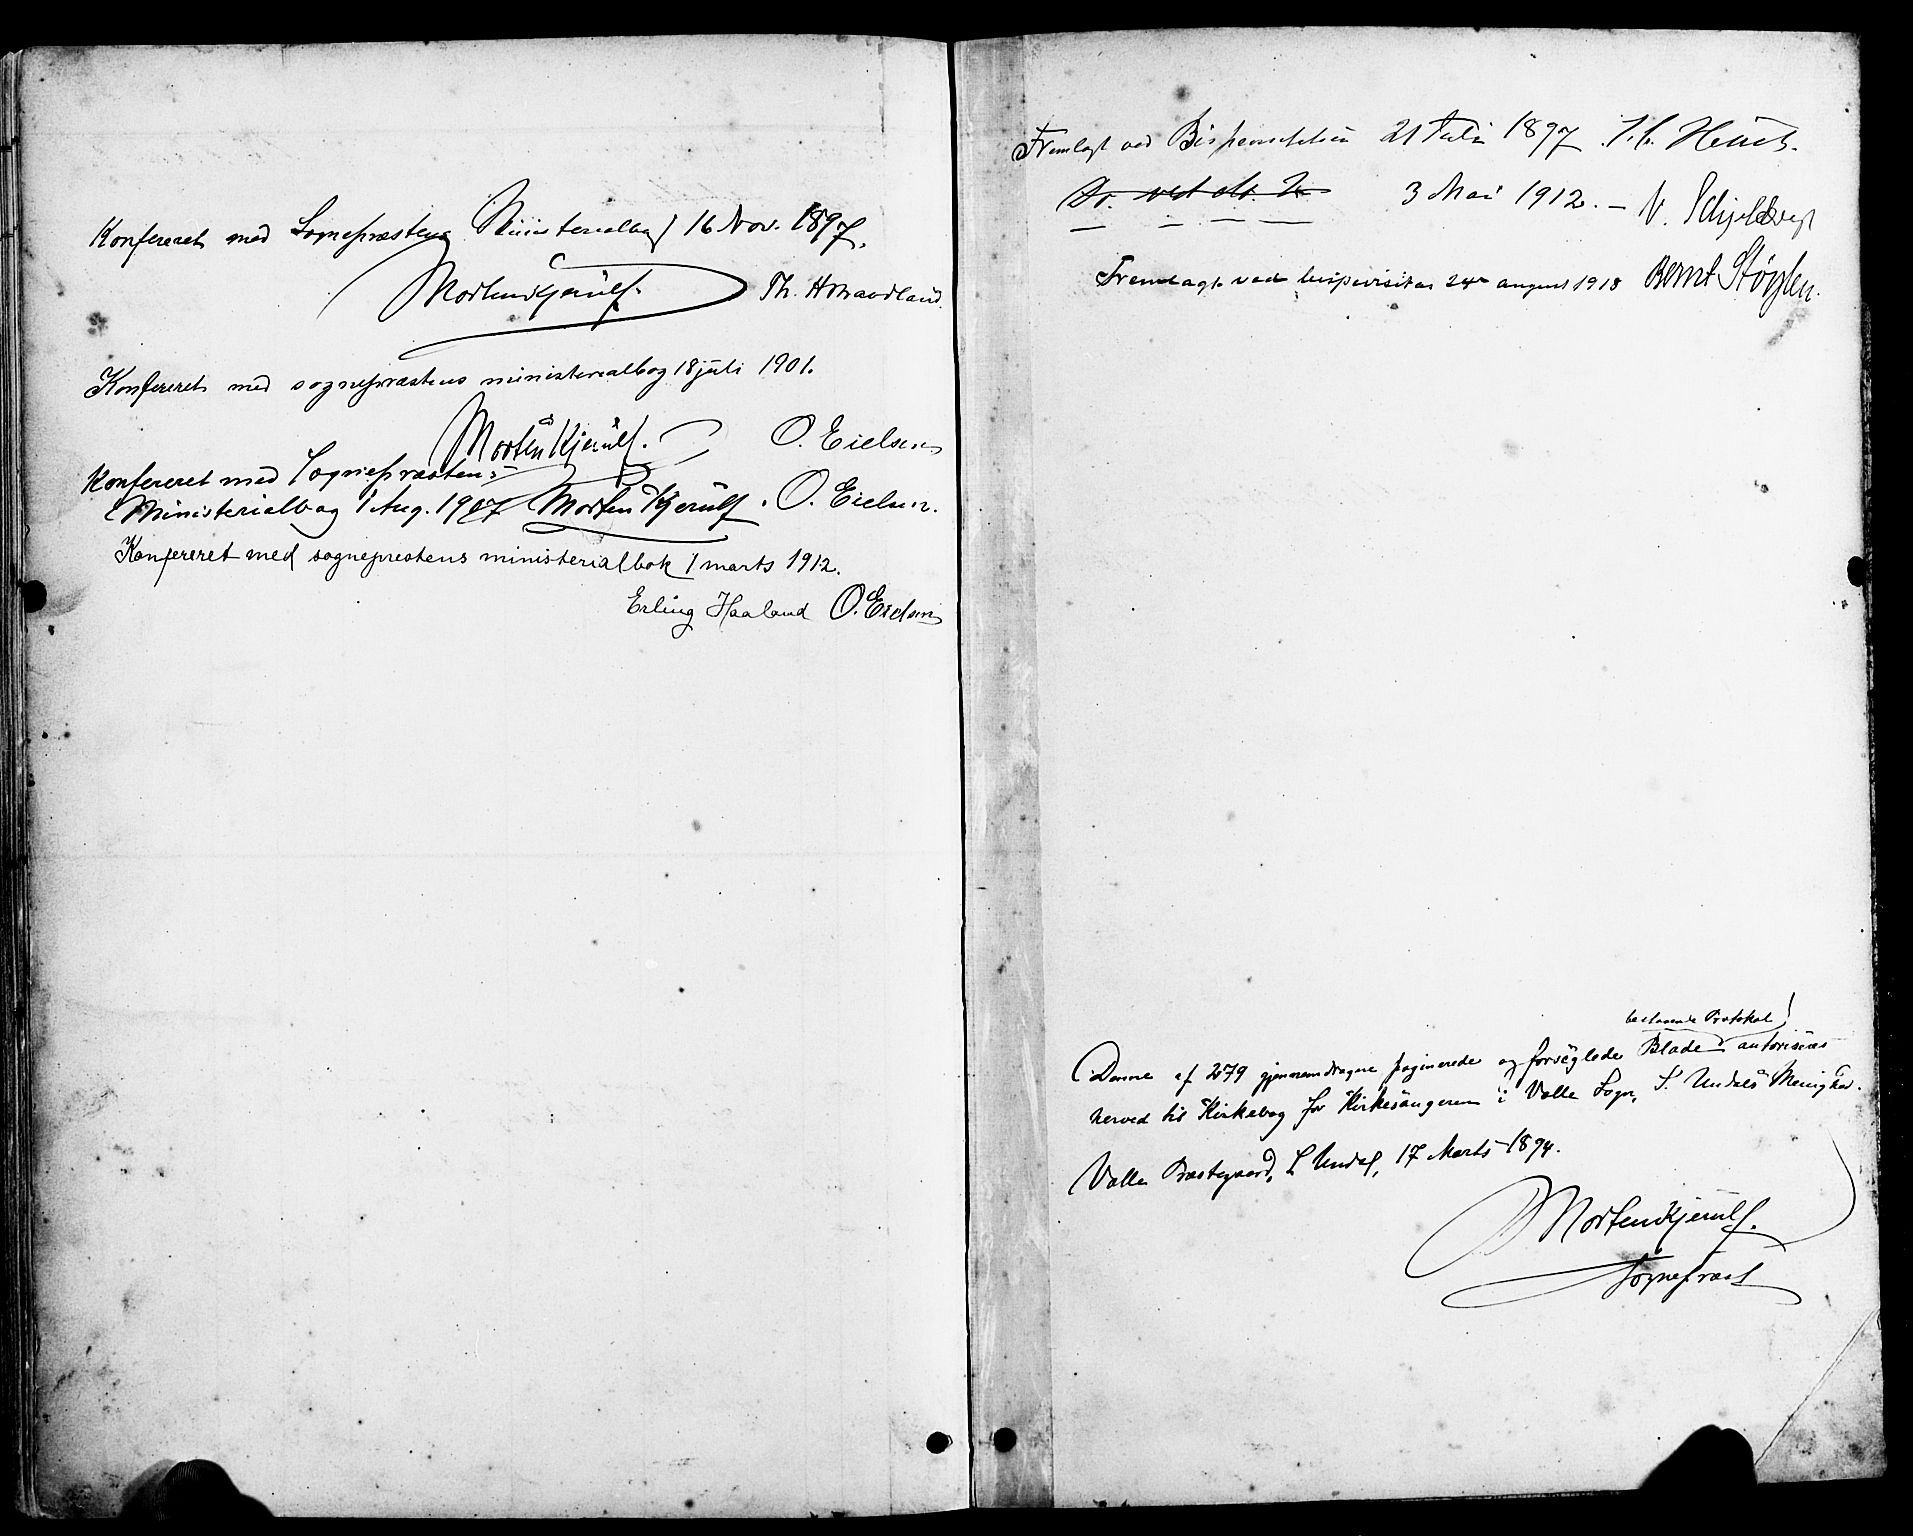 Konfereret med Sognepræstens Ministerialbog 16 Nov. 1897.
Morten Kjerulf. Th. H. Svaadland
Konfereret med sognepræstens ministerialbog 18 juli 1901.
Morten Kjerulf. O. Eielsen
Konfereret med Sognepræstens
Ministerialbog 1 Aug. 1907 Morten Kjerulf. O. Eielsen.
Konfereret med sogneprestens ministerialbok 1 marts 1912.
Erling Haaland O. Eielsen
Fremlagt ved Bispevisitation 21 Juli 1897. J. C. Heuch.
Do. ved do. 3 Mai 1912. – N. Schjelderup
Fremlagt ved bispevisitas 24de august 1918 Bernt Støylen.
bestaaende Protokol
Denne af 279 gjennemdragne paginerede og forseglede Blade autoriseres
herved til Kirkebog for Kirkesangeren i Valle Sogn, S. Undals Menighed.
Valle Præstegaard, S. Undal, 17 Marts 1894.
Morten Kjerulf.
Sognepræst